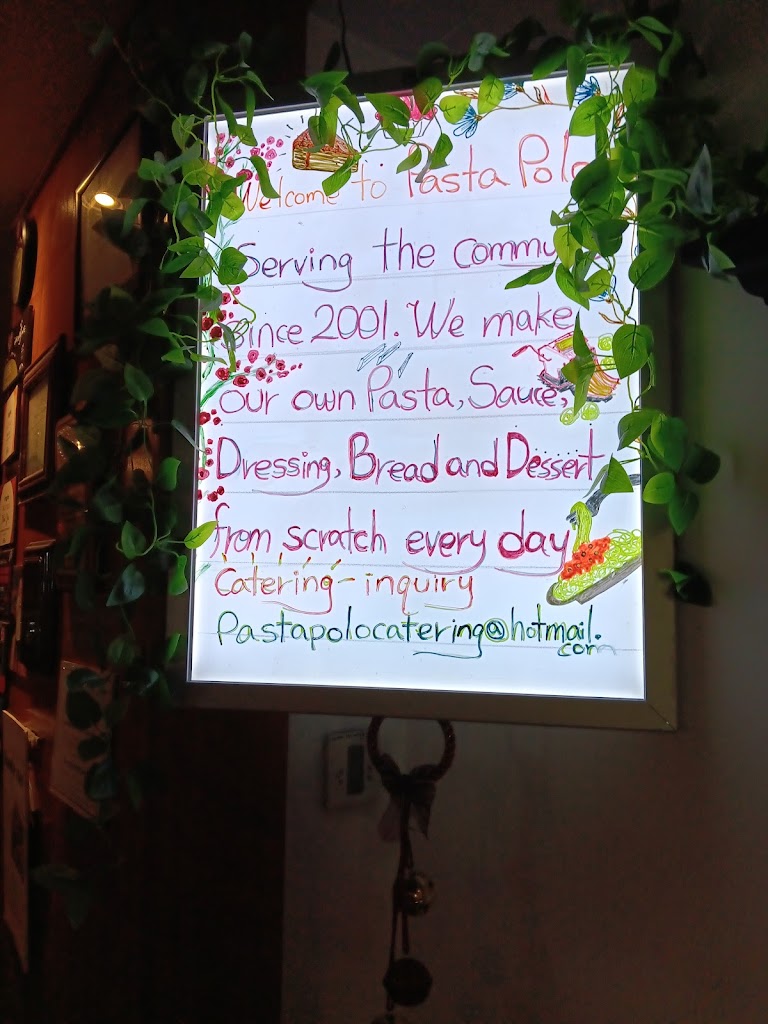 Welcome to Pasta Polo
Serving the commu
since 2001. We make
our own Pasta, Sauce,
Dressing, Bread and Dessert
from scratch every day
Catering - inquiry
Pastapolocatering@hotmail.
com